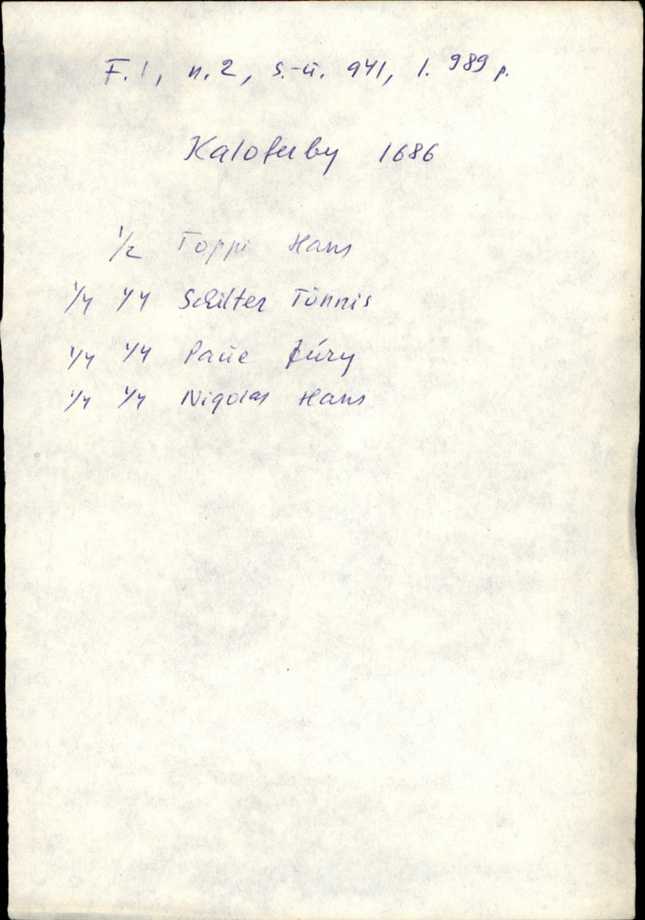 F. 1, n. 2, s.-ü. 941, l. 989 p.
Kaloferby 1686
1/2 Toppi Hans
1/4 1/4 Schilter Tönnis
1/4 1/4 Paüe Jüry
1/4 1/4 Nigolas Hans